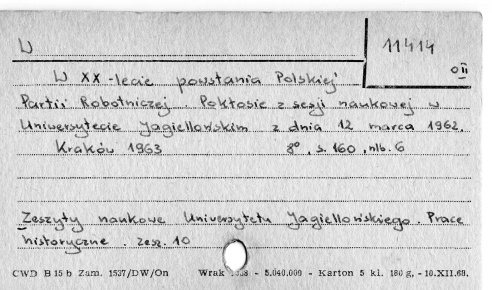 W
11414
OII
W XX-lecie powstania Polskiej
Partii Robotniczej. Pokłosie z sesji naukowej w
Uniwersytecie Jagiellońskim z dnia 12 marca 1962.
Kraków 1963 8°, s. 160, nlb. 6
Zeszyty naukowe Uniwersytetu Jagiellońskiego. Prace
historyczne. zesz. 10
CWD B 15 b Zam. 1537/DW/On Wrak - 5.040.000 - Karton 5 kl. 180 g, - 10.XII.68.